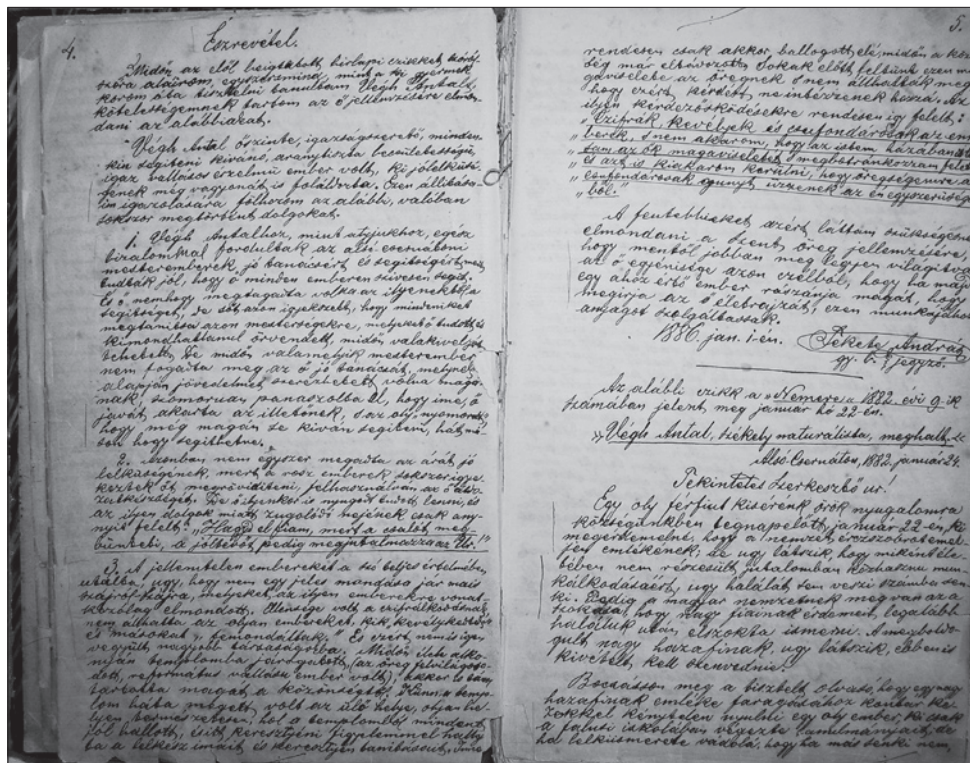 4.
Észrevétel.
Midőn az elől beigtatott, hirlapi czikket
szóra aláirom, egyszersmind, mint a ki gyermek
korom óta tisztelni tanultam Végh Antalt,
kötelességemnek tartom az ő jellemzésére elmon-
dani az alábbiakat.
Végh Antal őszinte, igazságszerető, minden-
kin segiteni kivánó, aranytiszta becsületességü,
igaz vallásos érzelmü ember volt, ki jótelküsé-
gének még vagyonát is feláldozta. Ezen állitása-
im igazolására fölhozom az alábbi, valóban
sokszor megtörtént dolgokat.
1. Végh Antalhoz, mint atyjukhoz, egész
bizalommal fordultak az alsó csernátoni
mesteremberek, jó tanácsért és segitségért, mert
tudták jól, hogy ő minden emberen szivesen segit.
És ő, nemhogy megtagadta volna az ilyenektől a
segitséget, de sőt azon igyekezett, hogy mindeniket
megtanitsa azon mesterségekre, melyeket ő tudott, és
kimondhatlanul örvendett, midőn valakivel jót
tehetett. De midőn valamelyik mesterember
nem fogadta meg az ő jó tanácsát, melynek
alapján jövedelmet szerezhetett volna magá-
nak, szomoruan panaszolta el, hogy ime, ő
javát akarta az illetőnek, s az oly nyomorult,
hogy még magán se kiván segiteni, hát má-
son hogy segithetne.
2. Azonban nem egyszer megadta az árát jó
lelküségének, mert a rosz emberek, sokszor igye-
keztek őt megröviditeni, felhasználván az ő
De ő ilyenkor is nyugodt tudott lenni, és
az ilyen dolgok miatt zugolódó nejének csak any-
nyit felelt: "Hagyd el fiam, mert a csalót meg-
bünteti, a jóltevőt pedig megjutalmazza az Úr!"
3. A jellemtelen embereket a szó teljes értelmében
utálta, ugy, hogy nem egy jeles mondása jár mais
szájról-szájra, melyeket az ilyen emberekre vonat-
kozólag elmondott. Ellensége volt a czifrálkodásnak,
nem álhatta az olyan embereket, kik kevélykedtek
és másokat "lemondáltak." És ezért nem is igen
vegyült nagyobb társaságba. Midőn élete alko-
nyán templomba járdogatott (az öreg felvilágoso-
dott, református vallásu ember volt), akkor is
tartotta magát a közönségtől. Künn, a temp-
lom háta mögött volt az ülő helye, olyan he-
lyen természetesen, hol a templomból mindent
jól hallott, s itt keresztyéni figyelemmel hallgat-
ta a lelkész imáit és keresztyén tanitásait,
5.
rendesen csak akkor, ballagott elé, midőn a közön-
ség már eltávozott. Sokak előtt feltünt ezen ma-
gaviselete az öregnek s nem álhatták meg,
hogy ezért kérdést ne intézzenek hozzá. Az
ilyen kérdezősködésekre rendesen igy felelt:
"Czifrák, kevélyek és csufondárosak az em-
berek, s nem akarom, hogy az istem házában
az ők magaviseletét megbotránkozzam felet-
és azt is ki akarom kerülni, hogy öregségemre a
csufondárosak gunyt űzzenek az én egyszerüség-
ből."
A fentebbieket azért láttam szükségesnek
elmondani a szent öreg jellemzésére,
hogy mentől jobban meg legyen világitva
az ő egyénisége azon czélból, hogy ha majd
egy ahoz értő ember rászánja magát, hogy
megirja az ő életrajzát, ezen munkájához
anyagot szolgáltassak.
1886. jan. 1-én. Fekete András
gy. b. s. jegyző.
Az alábbi czikk a "Nemere" 1882. évi 9-ik
számában jelent meg január hó 22-én.
"Végh Antal, székely naturalista, meghalt."
Alsó-Csernáton, 1882. január 24.
Tekintetes Szerkesztő ur!
Egy oly férfiut kisérénk örök nyugalomra
községünkben tegnapelőtt, január 22-én, ki
megérdemelné, hogy a nemzet érczszobrot emel-
jen emlékének; de ugy látszik, hogy miként éle-
tében nem részesült jutalomban közhasznu mun-
kálkodásáért, ugy halálát sem veszi számba sen-
ki. Pedig a magyar nemzetnek megvan az a
szokása, hogy nagy fiainak érdemeit legalább
haláluk után elszokta ismerni. A megboldo-
gult nagy hazafinak, ugy látszik, ebben is
kivételt kell szenvednie.
Bocsásson meg a tisztelt olvasó, hogy egy nagy
hazafinak emléke faragásához kontár ke-
zekkel kénytelen nyulni egy oly ember, ki csak
a falusi iskolában végezte tanulmányait, de
ha lelkiismerete vádolá, hogy ha más senki nem,